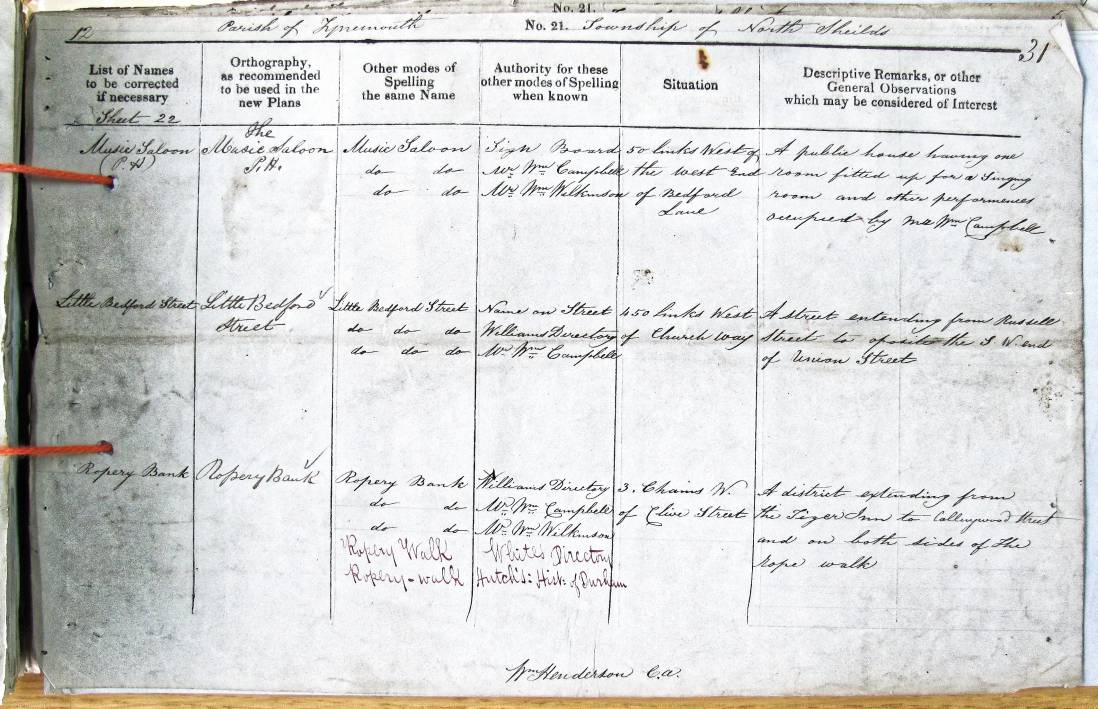 No. 21.
12 Parish of Tynemouth No. 21. Township of North Sheilds
31
List of Names to be corrected if necessary
Orthography, as recommended to be used in the new Plans
Other modes of Spelling the same Name
Authority for these other modes of Spelling when known
Situation
Descriptive Remarks, or other General Observations which may be considered of Interest
Sheet 22
Music Saloon
(P.H)
The
Music Saloon
P.H.
Music Saloon
do do
do do
Sign Board
Mr. Wm Campbell
Mr. Wm Wilkinson
50 links West of
the West End
of Bedford
Lane
A public house having one
room fitted up for a Singing
room and other performences
occupied by Mr Wm Campbell
Little Bedford Street
Little Bedford
Street
Little Bedford Street
do do do
do do do
Name on Street
Williams Directory
Mr. Wm Campbell
450 links West
of Church way
A street extending from Russell
Street to oposite the S.W. end
of Union Street
Ropery Bank
Ropery Bank
Ropery Bank
do do
do do
Ropery Walk
Ropery-walk
Williams Directory
Mr. Wm Campbell
Mr. Wm Wilkinson
Whites Directory
Hutch's: Hist: of Durham
3. Chains W.
of Clive Street
A district extending from
the Tiger Inn to Collingwood Street
and on both sides of the
rope walk
Wm Henderson C.a.